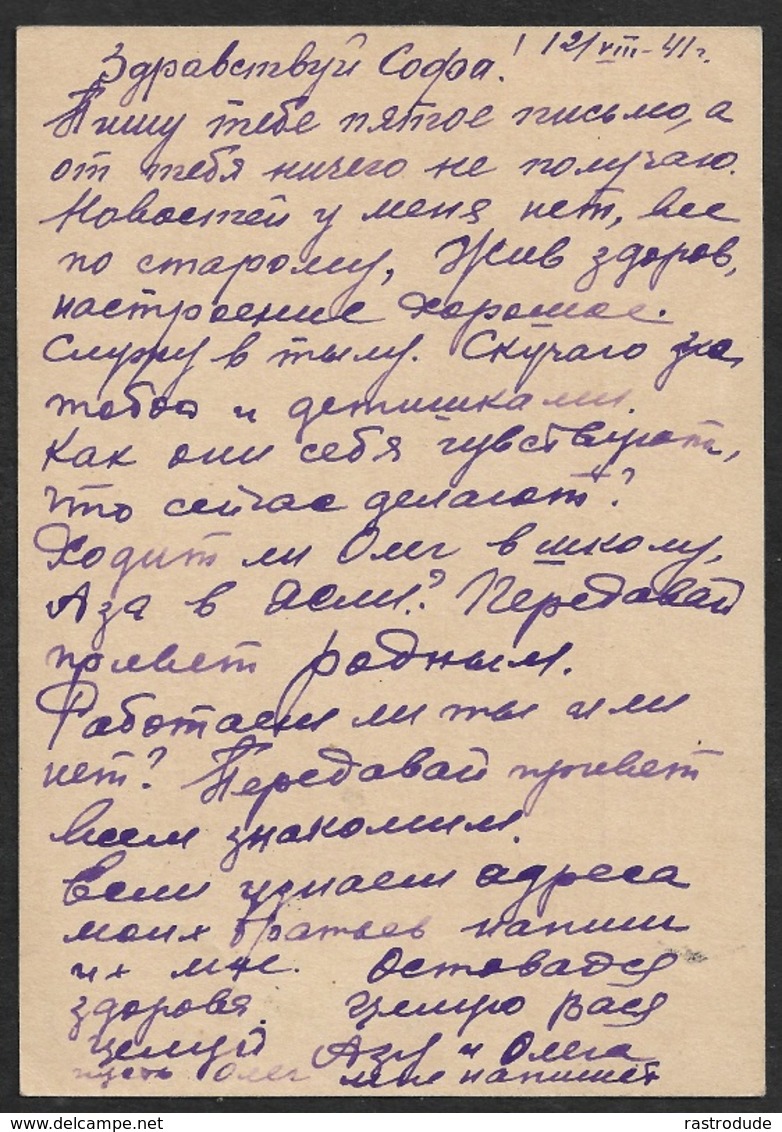 Здравствуй Софа! 12/VIII-41г.
Пишу тебе пятое письмо, а
от тебя ничего не получаю.
Новостей у меня нет, все
по старому, Жив здоров,
настроение хорошое.
Служу в тылу. Скучаю за
тобою и детишками.
Как они себя чувствуют,
что сейчас делают?
Ходит ли Олег в школу,
Аза в ясли? Передавай
привет родным.
Работаеш ли ты или
нет? Передавай привет
всем знакомим.
Если узнаеш адреса
моих братьев напиши
их мне. Остовайся
здорова. Целую Вася
Целуй Азу и Олега
пусть Олег мне напишет
rastrodude